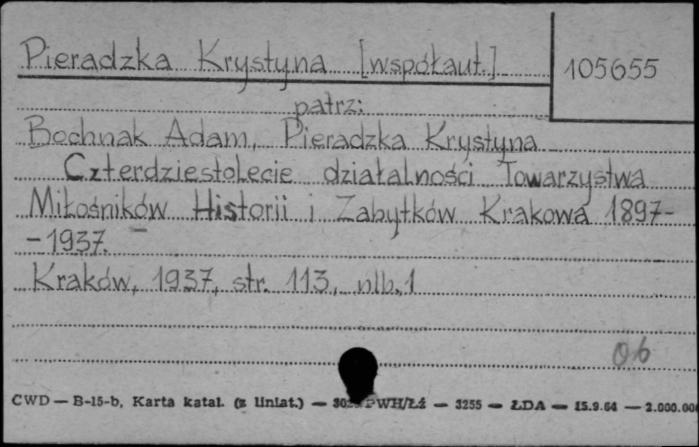 Pieradzka Krystyna [współaut.]
105655
patrz:
Bochnak Adam, Pieradzka Krystyna
Czterdziestolecie działalności Towarzystwa
Miłośników Historii i Zabytków Krakowa 1897-
-1937. -
Kraków, 1937, str. 113, nlb. 1
Ob
CWD — B-15-b, Karta katal. (z liniat.) — PWH/Łź — 3255 — ŁDA — 15.9.64 — 2.000.00